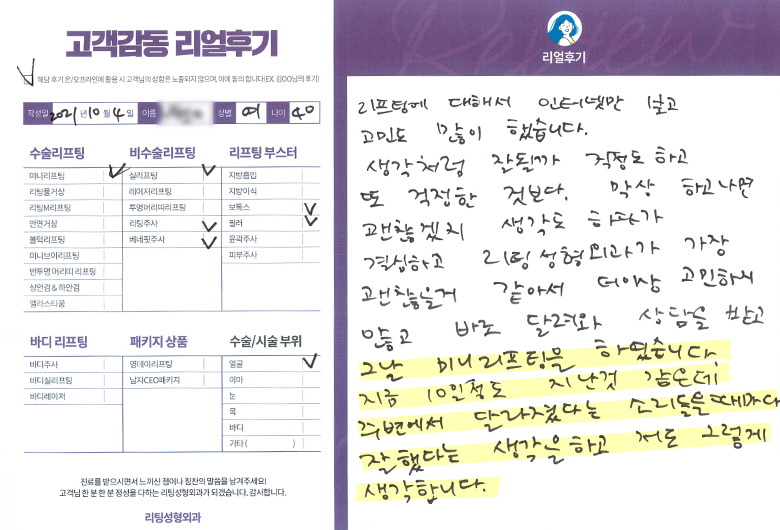 고객감동 리얼후기
해당 후기 온/오프라인에 활용 시 고객님의 성함은 노출되지 않으며, 이에 동의 합니다(EX. 김OO님의 후기)
작성일 2021년 10월 4일 이름 성별 여 나이 40
수술리프팅
미니리프팅
리팅풀거상
리팅M리프팅
안면거상
볼턱리프팅
미니브이리프팅
반투명 머리띠 리프팅
상안검 & 하안검
엘라스티꿈
비수술리프팅
실리프팅
레이저리프팅
투명머리띠리프팅
리팅주사
베네핏주사
리프팅 부스터
지방흡입
지방이식
보톡스
필러
윤곽주사
피부주사
바디 리프팅
바디주사
바디실리프팅
바디레이저
패키지 상품
영데이리프팅
남자CEO패키지
수술/시술 부위
얼굴
이마
눈
목
바디
기타 ( )
진료를 받으시면서 느끼신 점이나 칭찬의 말씀을 남겨주세요!
고객님 한 분 한 분 정성을 다하는 리팅성형외과가 되겠습니다. 감사합니다.
리팅성형외과
Review
리얼후기
리프팅에 대해서 인터넷만 보고
고민도 많이 했습니다.
생각처럼 잘될까 걱정도하고
또 걱정한 것보다. 막상 하고나면
괜찮겠지 생각도 하다가
결심하고 리팅성형외과가 가장
괜찮을거 같아서 더이상 고민하지
않고 바로 달려와 상담을 받고
그날 미니리프팅을 하였습니다.
지금 10일정도 지난것 같은데
주변에서 달라졌다는 소리들을때마다
잘했다는 생각을하고 저도 그렇게
생각합니다.